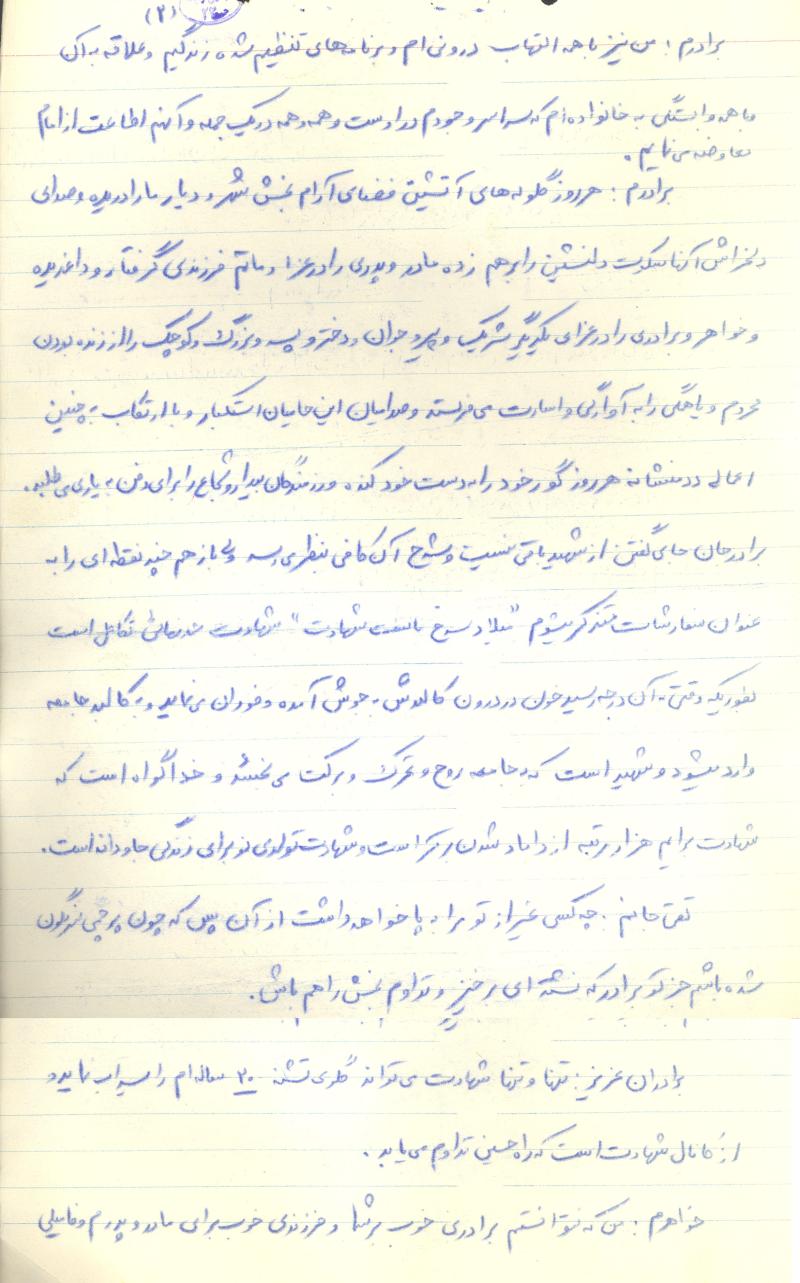 (۲)
برادرم : من نیز با همه التهاب درونی‌ام و برنامه‌های تنظیم شده زندگیم و علاقه به آن
و با همه وابستگی به خانواده‌ام که سراسر وجودم در اوست و همه و همه در یک جمله و آنهم اطاعت از امام
معاوضه می‌نمایم .
برادرم : هر روز گلوله‌های آتشین فضای آرام بخش شهر و دیار ما را دریده و صدای
دلخراش آنها سکوت دلنشین را برهم زده مادر و پدری را در عزا و ماتم فرزندی گرفتار و داغدیده
و خواهر و برادری را در عزای یکدیگر شریک و پیر و جوان و دختر و پسر و بزرگ و کوچک را از زنده بودن
محروم و یا همگی را به آوارگی و اسارت می‌فرستد و صدامیان این حامیان استکبار و با ارتکاب به چنین
اعمال ددمنشانه هر روز گور خود را بدست خود کنده و رزمندگان بیدار و شجاع را برای دفن به یاری می‌طلبد .
برادرجان جای گفتن از شهید باقی نیست و شرح آن کافی بنظر می‌رسد ولی باز هم چند نقطه‌ای را به
عنوان سفارشات متذکر میشوم "میلاد سرخ است شهادت" شهادت تکامل است
بطوریکه وقتی به آن درجه رسید خون در درون کالبدش به جوش آمده و فوران می‌نماید و به کالبد جامعه
وارد میشود و شهید است که به جامعه روح و تحرک و برکت می‌بخشد و خدا گواه است که
شهادت برایم هزار مرتبه از داماد شدن است و شهادت تولدی نو برای زندگی جاودانه است .
تقی جانم : چه کسی غیر از تو مرا به پا خواهد داشت از آن پس که چون پرچمی سرنگون
شده باشم جز تو برادر که نشسته‌ای برخیز و تداوم بخش راهم باش .
برادران عزیز : تنها و تنها شهادت می‌تواند گلوی تشنه ۲۰ ساله‌ام را سیراب نماید و
از کانال شهادت است که راه حسین تداوم می‌یابد .
خواهرم : من که نتوانستم برادری خوب بر شما و فرزندی خوب برای مادر و پدرم و فامیلی